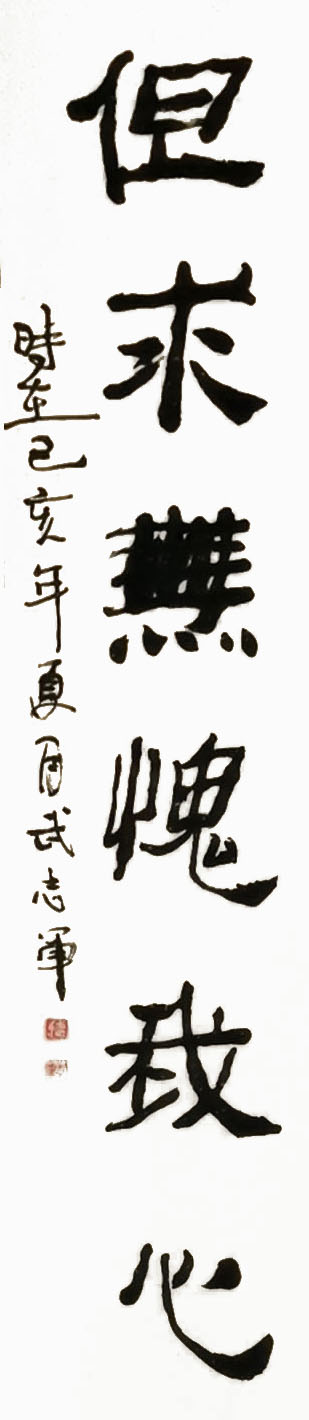 但求無愧我心
時在己亥年夏月武志軍